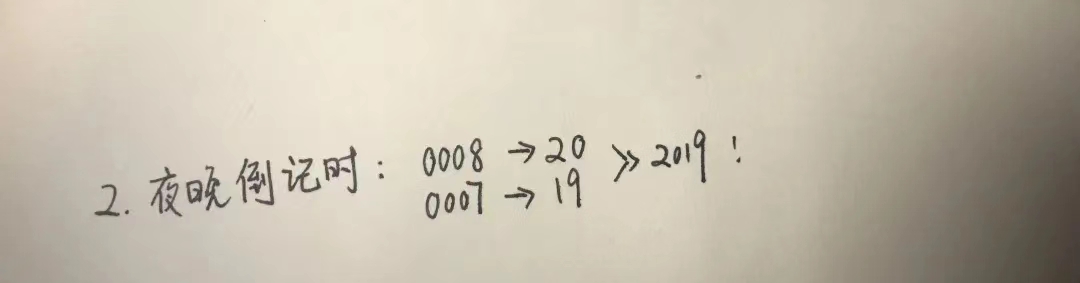 2. 夜晚倒记时: 0008 → 20 >> 2019!
0007 → 19